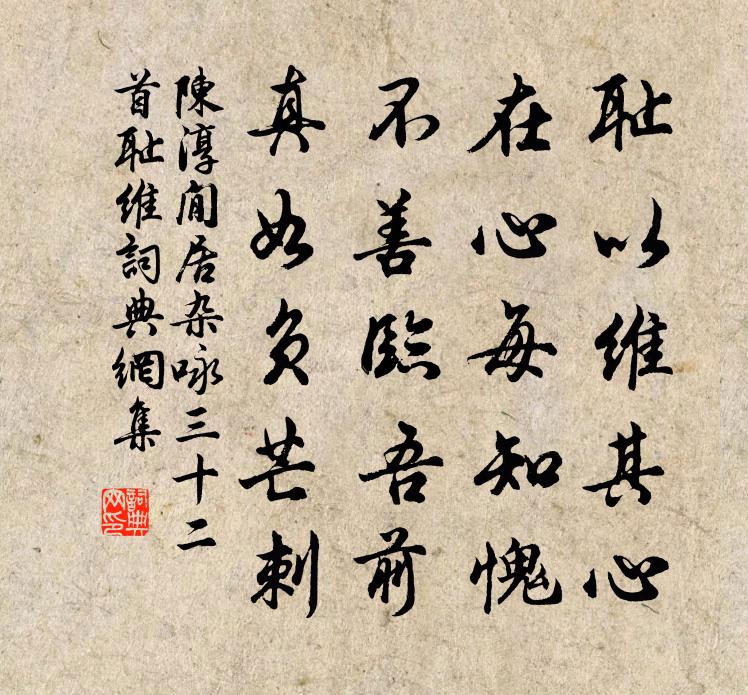 耻以維其心
在心每知愧
不善臨吾前
真如負芒刺
陳淳閒居杂咏三十二
首耻維詞典網集
詞典
网印